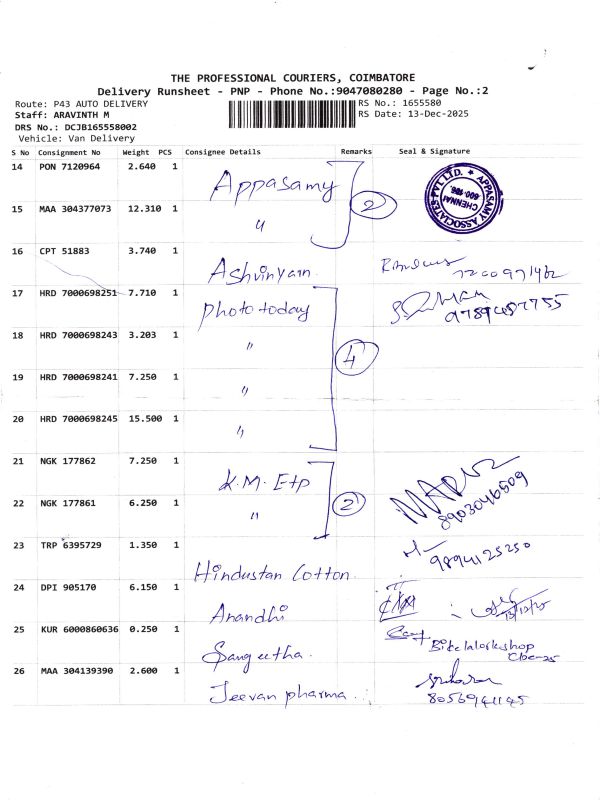 THE PROFESSIONAL COURIERS, COIMBATORE
Delivery Runsheet - PNP - Phone No.:9047080280 - Page No.:2
Route: P43 AUTO DELIVERY
RS No.: 1655580
Staff: ARAVINTH M
RS Date: 13-Dec-2025
DRS No.: DCJB165558002
Vehicle: Van Delivery
S No Consignment No Weight PCS Consignee Details Remarks Seal & Signature
14 PON 7120964 2.640 1 Appasamy 2
APPASAMY ASSOCIATES PVT LTD. CHENNAI 600-106.
15 MAA 304377073 12.310 1 "
16 CPT 51883 3.740 1 Ashvinyarn 7200971462
17 HRD 7000698251 7.710 1 Phototoday 4
18 HRD 7000698243 3.203 1 "
19 HRD 7000698241 7.250 1 "
20 HRD 7000698245 15.500 1 "
21 NGK 177862 7.250 1 K.M. Etp 2 8903046509
22 NGK 177861 6.250 1 "
23 TRP 6395729 1.350 1 Hindustan Cotton 9894125250
24 DPI 905170 6.150 1 Anandhi 13/12/25
25 KUR 6000860636 0.250 1 Sangeetha Cbe-25
26 MAA 304139390 2.600 1 Jeevan pharma 8056941145